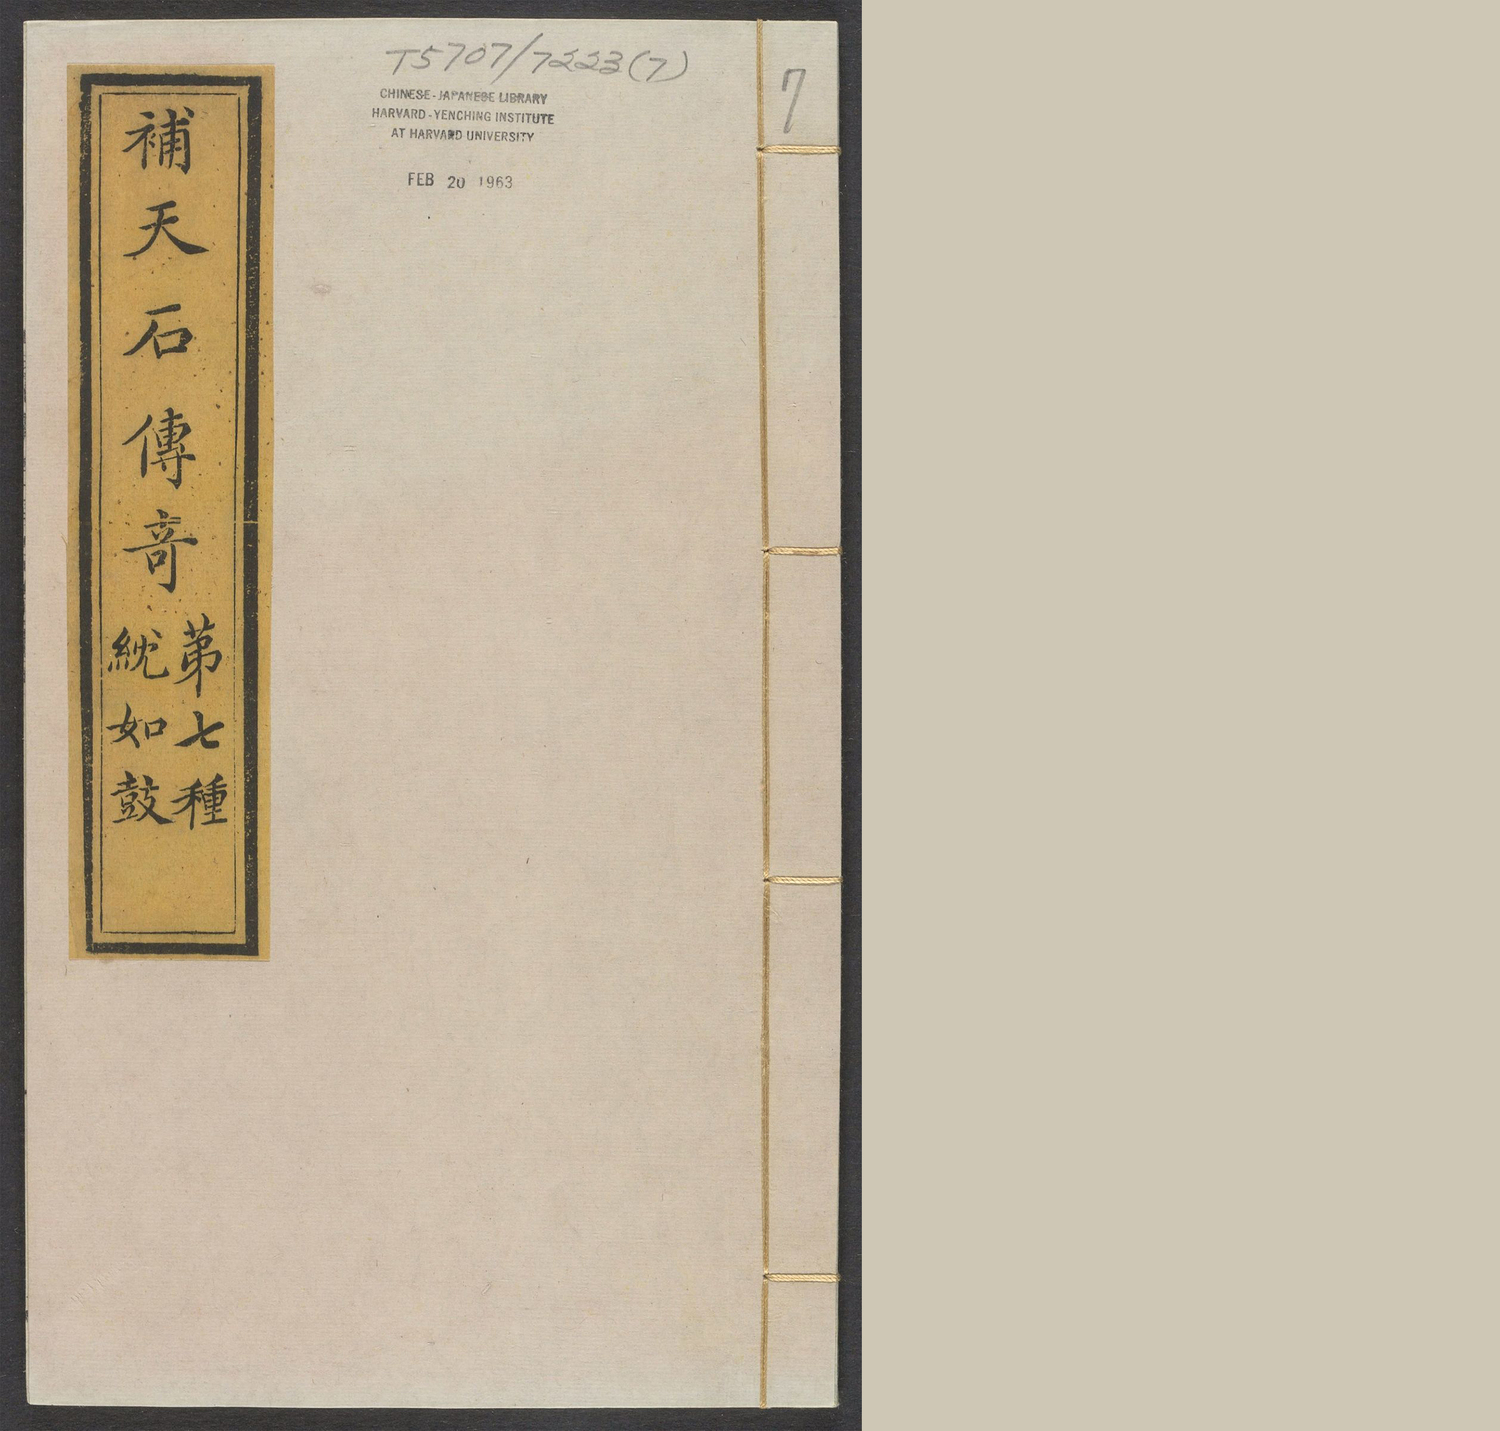 補天石傳奇
第七種
紞如鼓
T5707/7223(7)
CHINESE-JAPANESE LIBRARY
HARVARD-YENCHING INSTITUTE
AT HARVARD UNIVERSITY
FEB 20 1963
7